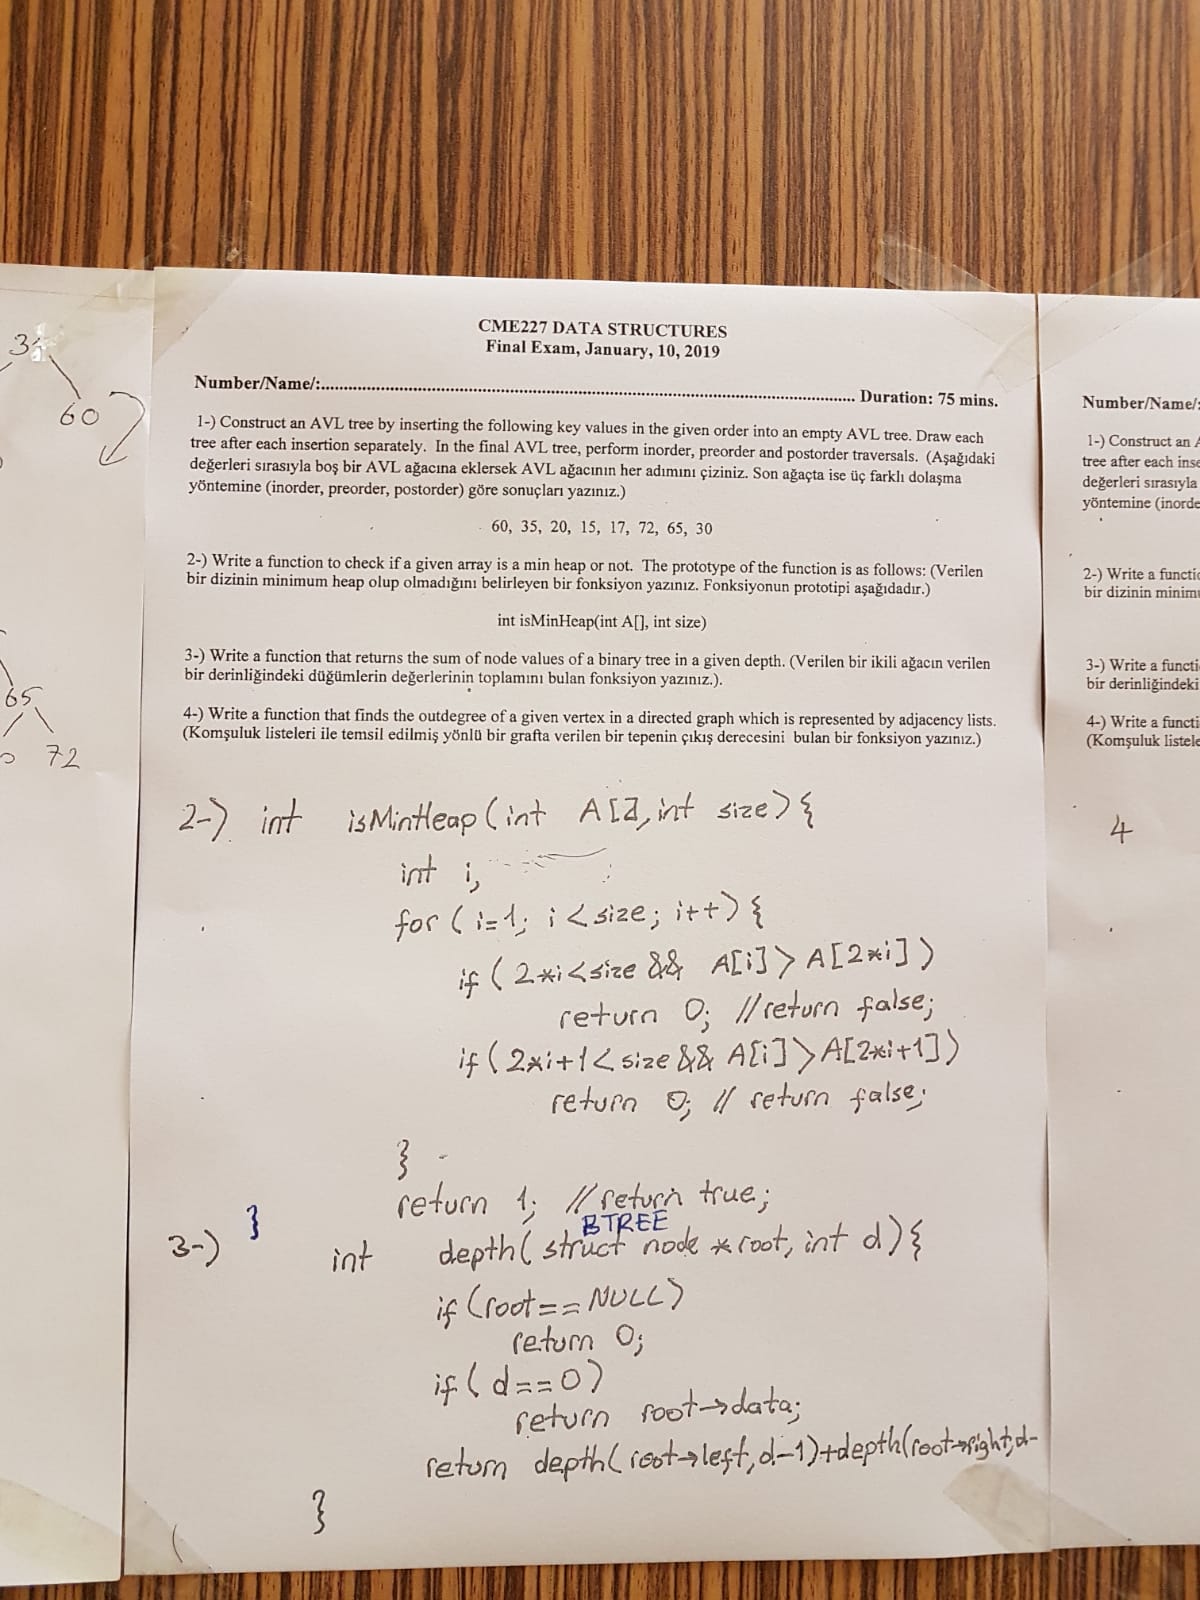 35
60
65
72
CME227 DATA STRUCTURES
Final Exam, January, 10, 2019
Number/Name/:................................ Duration: 75 mins.
1-) Construct an AVL tree by inserting the following key values in the given order into an empty AVL tree. Draw each
tree after each insertion separately. In the final AVL tree, perform inorder, preorder and postorder traversals. (Aşağıdaki
değerleri sırasıyla boş bir AVL ağacına eklersek AVL ağacının her adımını çiziniz. Son ağaçta ise üç farklı dolaşma
yöntemine (inorder, preorder, postorder) göre sonuçları yazınız.)
60, 35, 20, 15, 17, 72, 65, 30
2-) Write a function to check if a given array is a min heap or not. The prototype of the function is as follows: (Verilen
bir dizinin minimum heap olup olmadığını belirleyen bir fonksiyon yazınız. Fonksiyonun prototipi aşağıdadır.)
int isMinHeap(int A[], int size)
3-) Write a function that returns the sum of node values of a binary tree in a given depth. (Verilen bir ikili ağacın verilen
bir derinliğindeki düğümlerin değerlerinin toplamını bulan fonksiyon yazınız.).
4-) Write a function that finds the outdegree of a given vertex in a directed graph which is represented by adjacency lists.
(Komşuluk listeleri ile temsil edilmiş yönlü bir grafta verilen bir tepenin çıkış derecesini bulan bir fonksiyon yazınız.)
2-) int isMinHeap(int A[], int size){
int i;
for (i=1; i<size; i++){
if (2*i<size && A[i]>A[2*i])
return 0; //return false;
if (2*i+1<size && A[i]>A[2*i+1])
return 0; // return false;
}
return 1; //return true;
}
3-) int depth(struct BTREE node *root, int d){
if (root==NULL)
return 0;
if (d==0)
return root→data;
return depth(root→left,d-1)+depth(root→right,d-
}
Number/Name/:
1-) Construct an A
tree after each inse
değerleri sırasıyla
yöntemine (inorde
2-) Write a functio
bir dizinin minimu
3-) Write a functi
bir derinliğindeki
4-) Write a functi
(Komşuluk listele
4